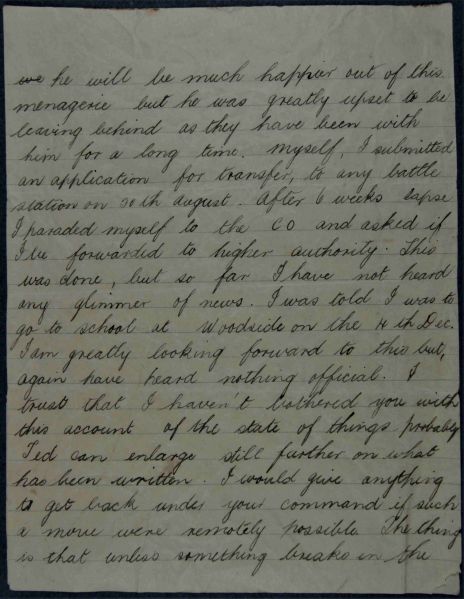 we he will be much happier out of this
menagerie but he was greatly upset to be
leaving behind as they have been with
him for a long time. Myself, I submitted
an application for transfer, to any battle
station on 30th August. After 6 weeks lapse
I paraded myself to the CO and asked if
I be forwarded to higher authority. This
was done, but so far I have not heard
any glimmer of news. I was told I was to
go to school at Woodside on the 4th Dec.
I am greatly looking forward to this but,
again have heard nothing official. I
trust that I haven't bothered you with
this account of the state of things probably
Ted can enlarge still further on what
has been written. I would give anything
to get back under your command if such
a move were remotely possible. The thing
is that unless something breaks in the